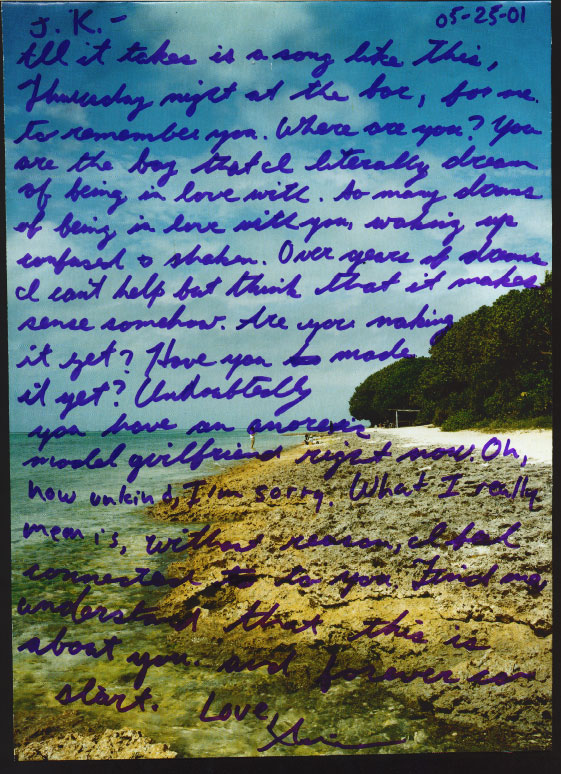 J. K. - 05-25-01
All it takes is a song like this,
Thursday night at the bar, for me
to remember you. Where are you? You
are the boy that I literally dream
of being in love with. So many dreams
of being in love with you, waking up
confused & shaken. Over years of dreams
I can't help but think that it makes
sense somehow. Are you making
it yet? Have you made
it yet? Undoubtedly
you have an anorexic
model girlfriend right now. Oh,
how unkind, I'm sorry. What I really
mean is, without reason, I feel
connected to you. Find me,
understand that this is
about you. and forever can
start. Love,